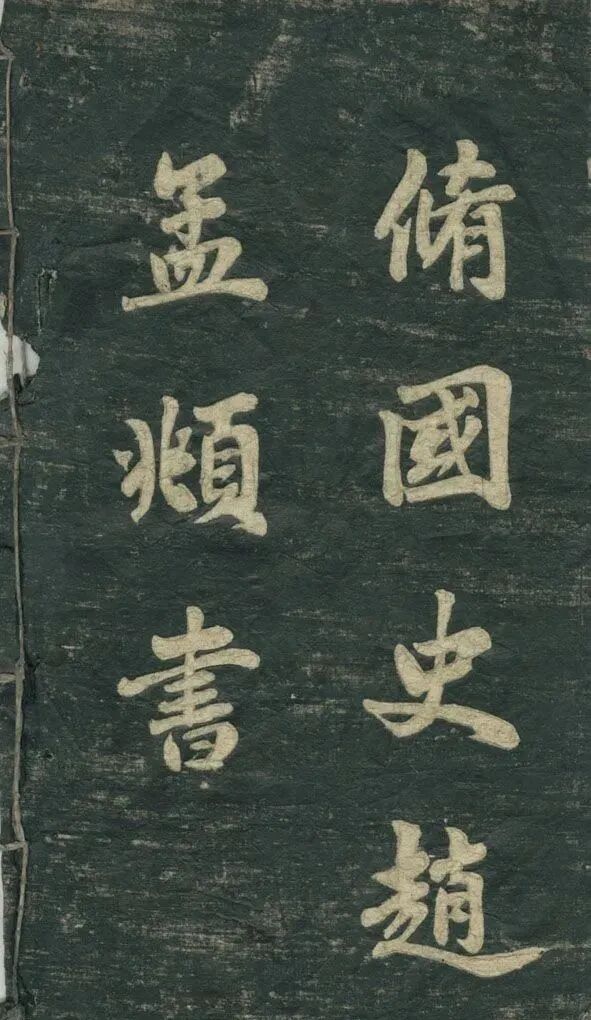 脩國史趙
孟頫書